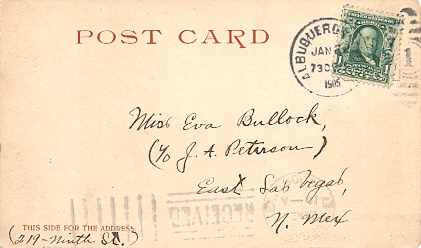 POST CARD
ALBUQUERQ
JAN
730
1905
1
Miss Eva Bullock,
(c/o J. A. Peterson)
East Las Vegas,
N. Mex
RECEIVED
THIS SIDE FOR THE ADDRESS
(219-Ninth St.)